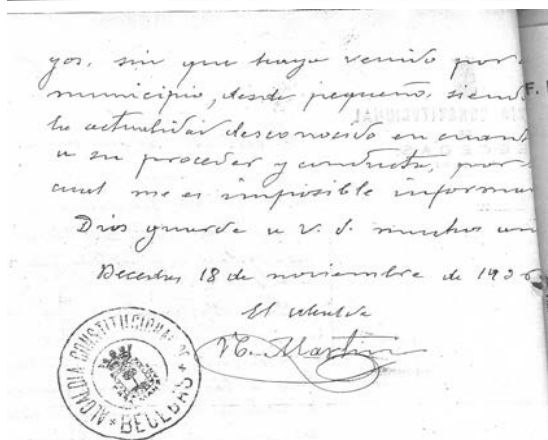 yos, sin que haya venido por
municipio, desde pequeño, siend
la actualidad desconocido en cuant
a su proceder y conducta, por
cual me es imposible informar
Dios guarde a V. S. muchos
Becedas 18 de noviembre de 19
El alcalde
M. Martin
ALCALDIA CONSTITUCIONAL DE
* BECEDAS *